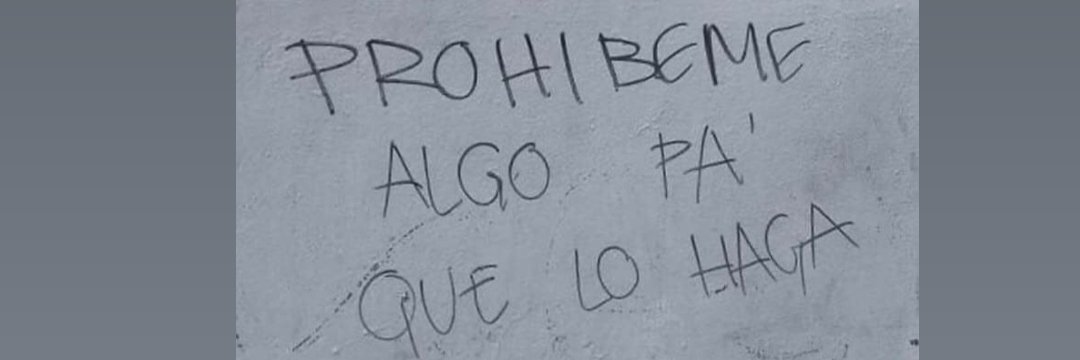 PROHIBEME
ALGO PA'
QUE LO HAGA